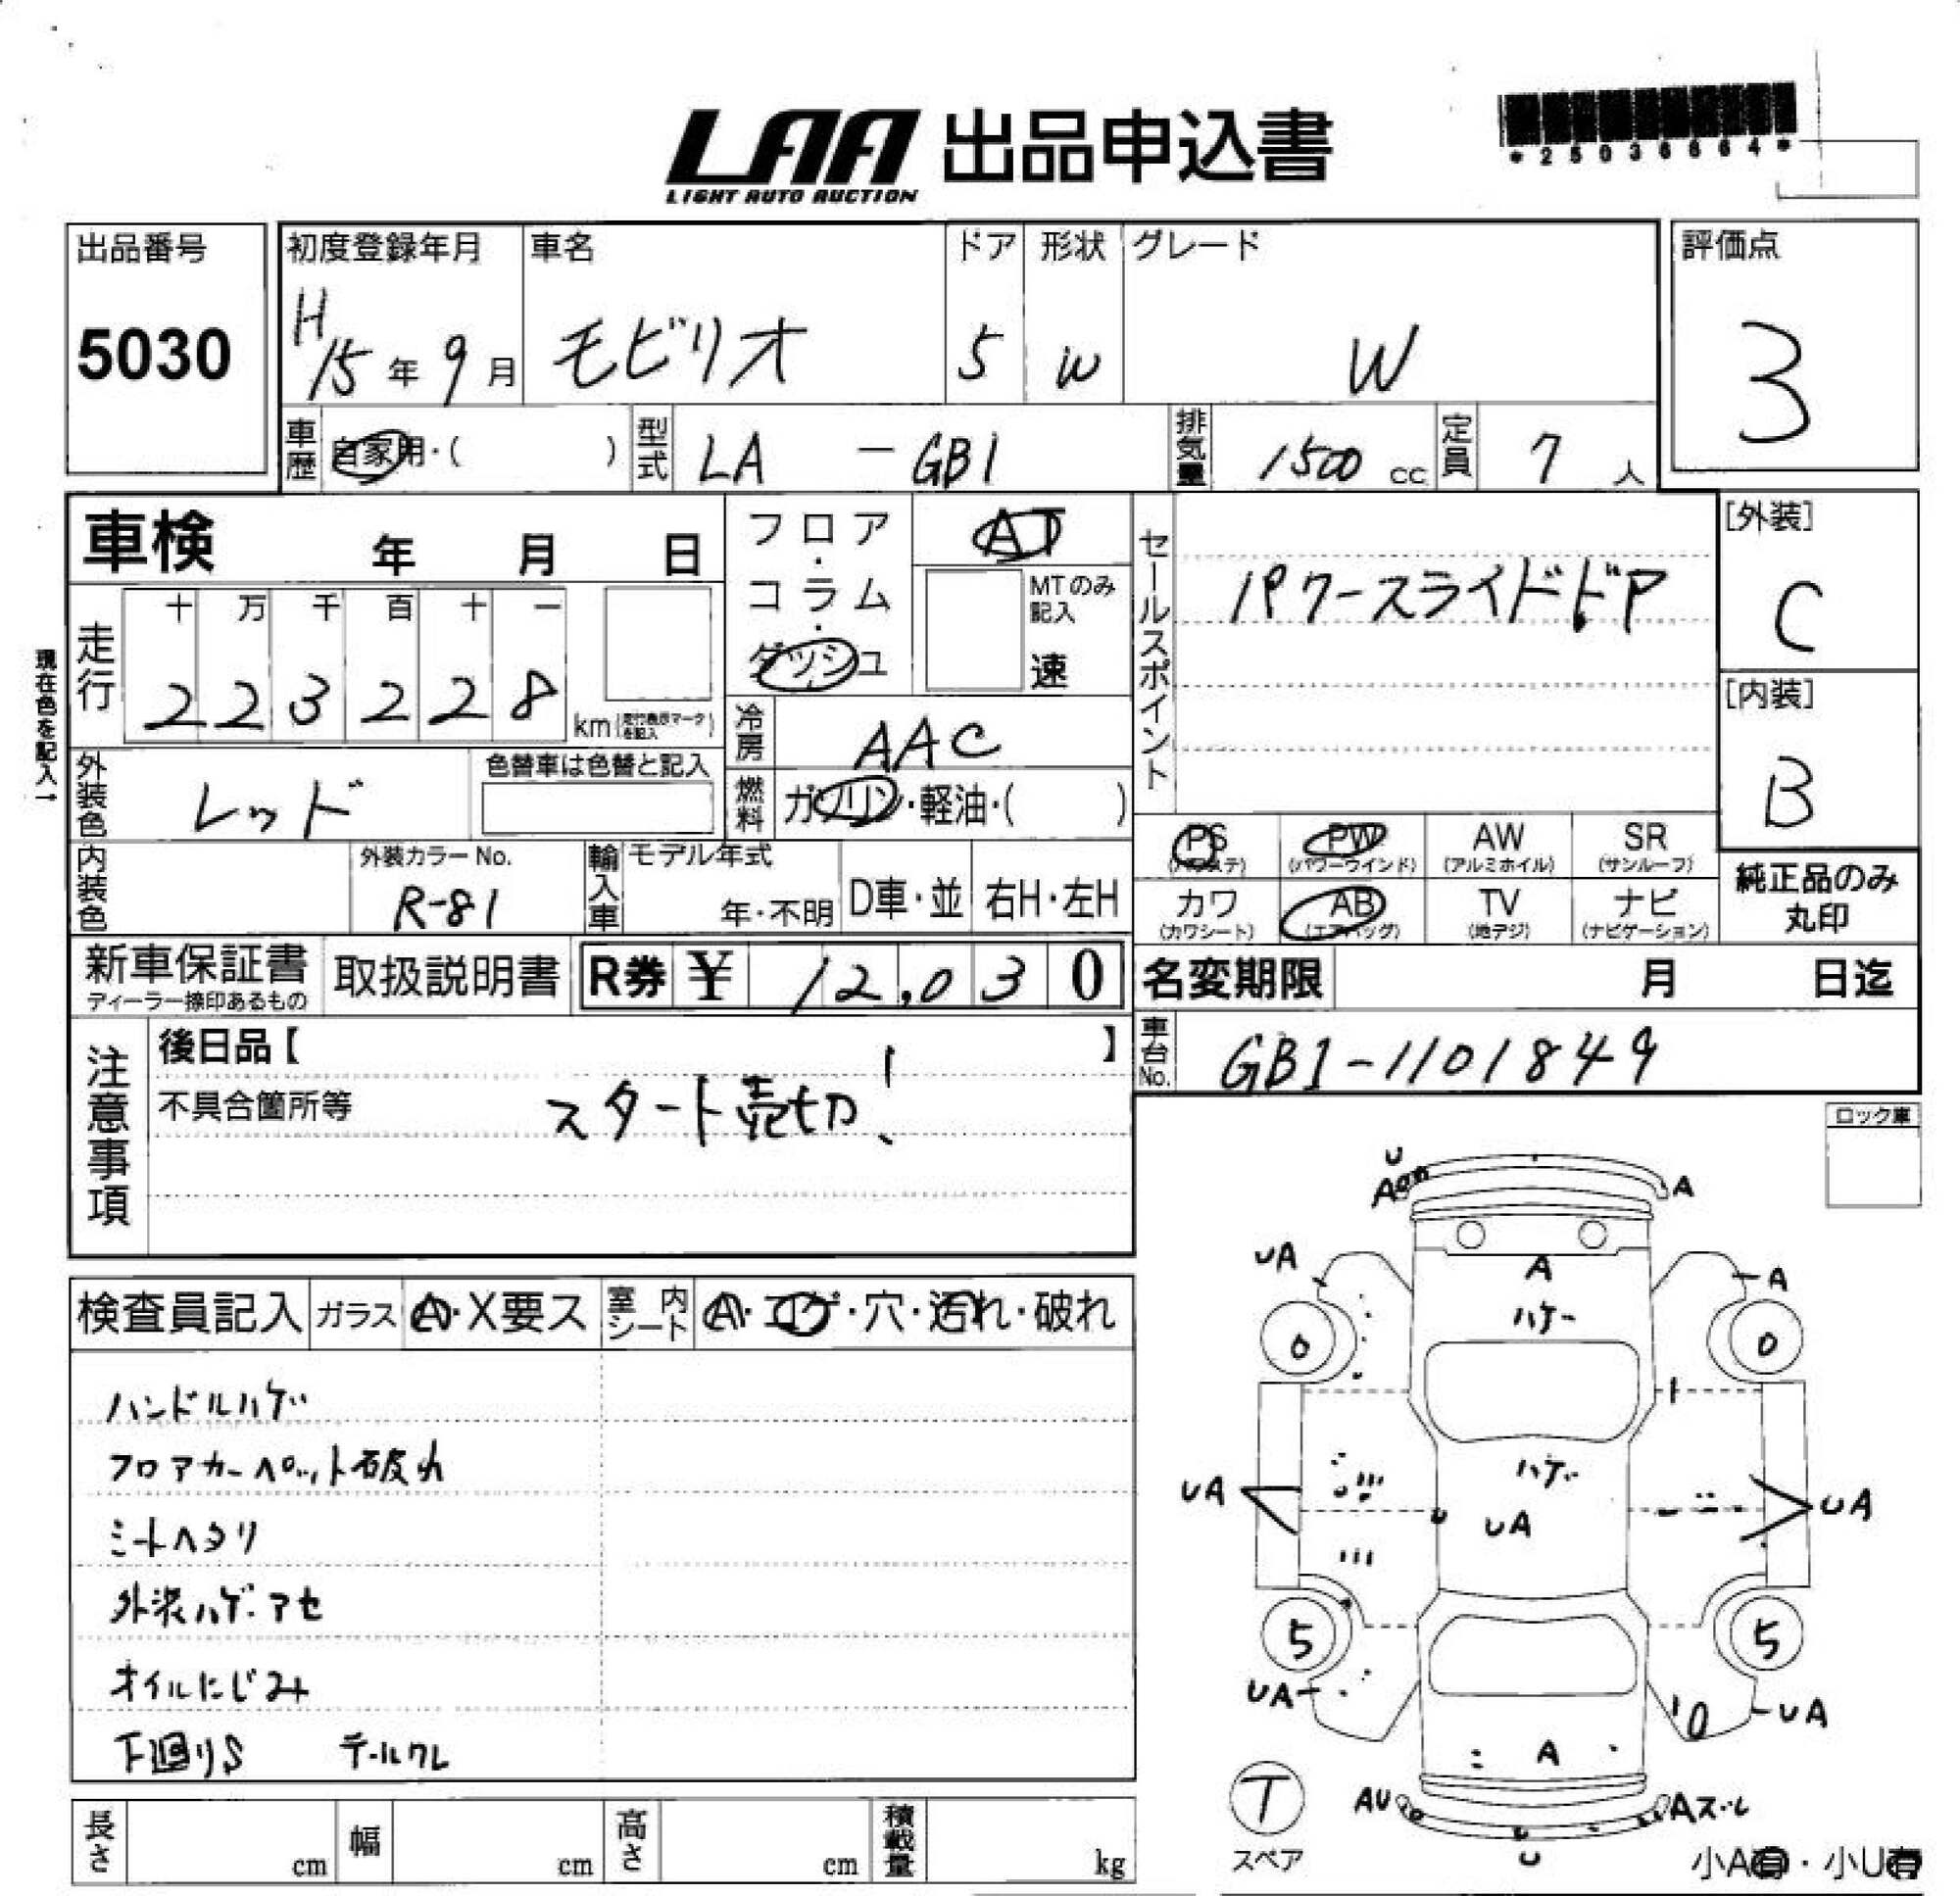 LAA 出品申込書
LIGHT AUTO AUCTION
*25036664*
出品番号
5030
初度登録年月
H15年9月
車名
モビリオ
ドア
5
形状
W
グレード
W
評価点
3
車歴
自家用・( )
型式
LA - GB1
排気量
1500 cc
定員
7 人
車検 年 月 日
フロア・コラム・ダッシュ
AT
MTのみ記入
速
セールスポイント
パワースライドドア
[外装]
C
[内装]
B
現在色を記入→
走行
十 万 千 百 十 一
2 2 3 2 2 8
km(走行表示マークを記入)
冷房
AAC
燃料
ガソリン・軽油・( )
外装色
レッド
色替車は色替と記入
内装色
外装カラーNo.
R-81
輸入車
モデル年式
年・不明
D車・並
右H・左H
PS (パワステ)
PW (パワーウインド)
AW (アルミホイル)
SR (サンルーフ)
カワ (カワシート)
AB (エアバッグ)
TV (地デジ)
ナビ (ナビゲーション)
純正品のみ
丸印
新車保証書
ディーラー捺印あるもの
取扱説明書
R券 ¥ 12,030
名変期限 月 日迄
車台No.
GB1-1101849
注意事項
後日品【 】
不具合箇所等
スタート売切!
ロック車
検査員記入
ガラス
A・X要ス
室内シート
A・コゲ・穴・汚れ・破れ
ハンドルハゲ
フロアカーペット破れ
シートヘタリ
外装ハゲ・アセ
オイルにじみ
下廻りS テールワレ
U
A
A
UA
A
A
ハゲ
0
0
ハゲ
UA
UA
UA
5
5
UA
UA
A
T
スペア
AU
Aズレ
U
小A有・小U有
長さ cm
幅 cm
高さ cm
積載量 kg